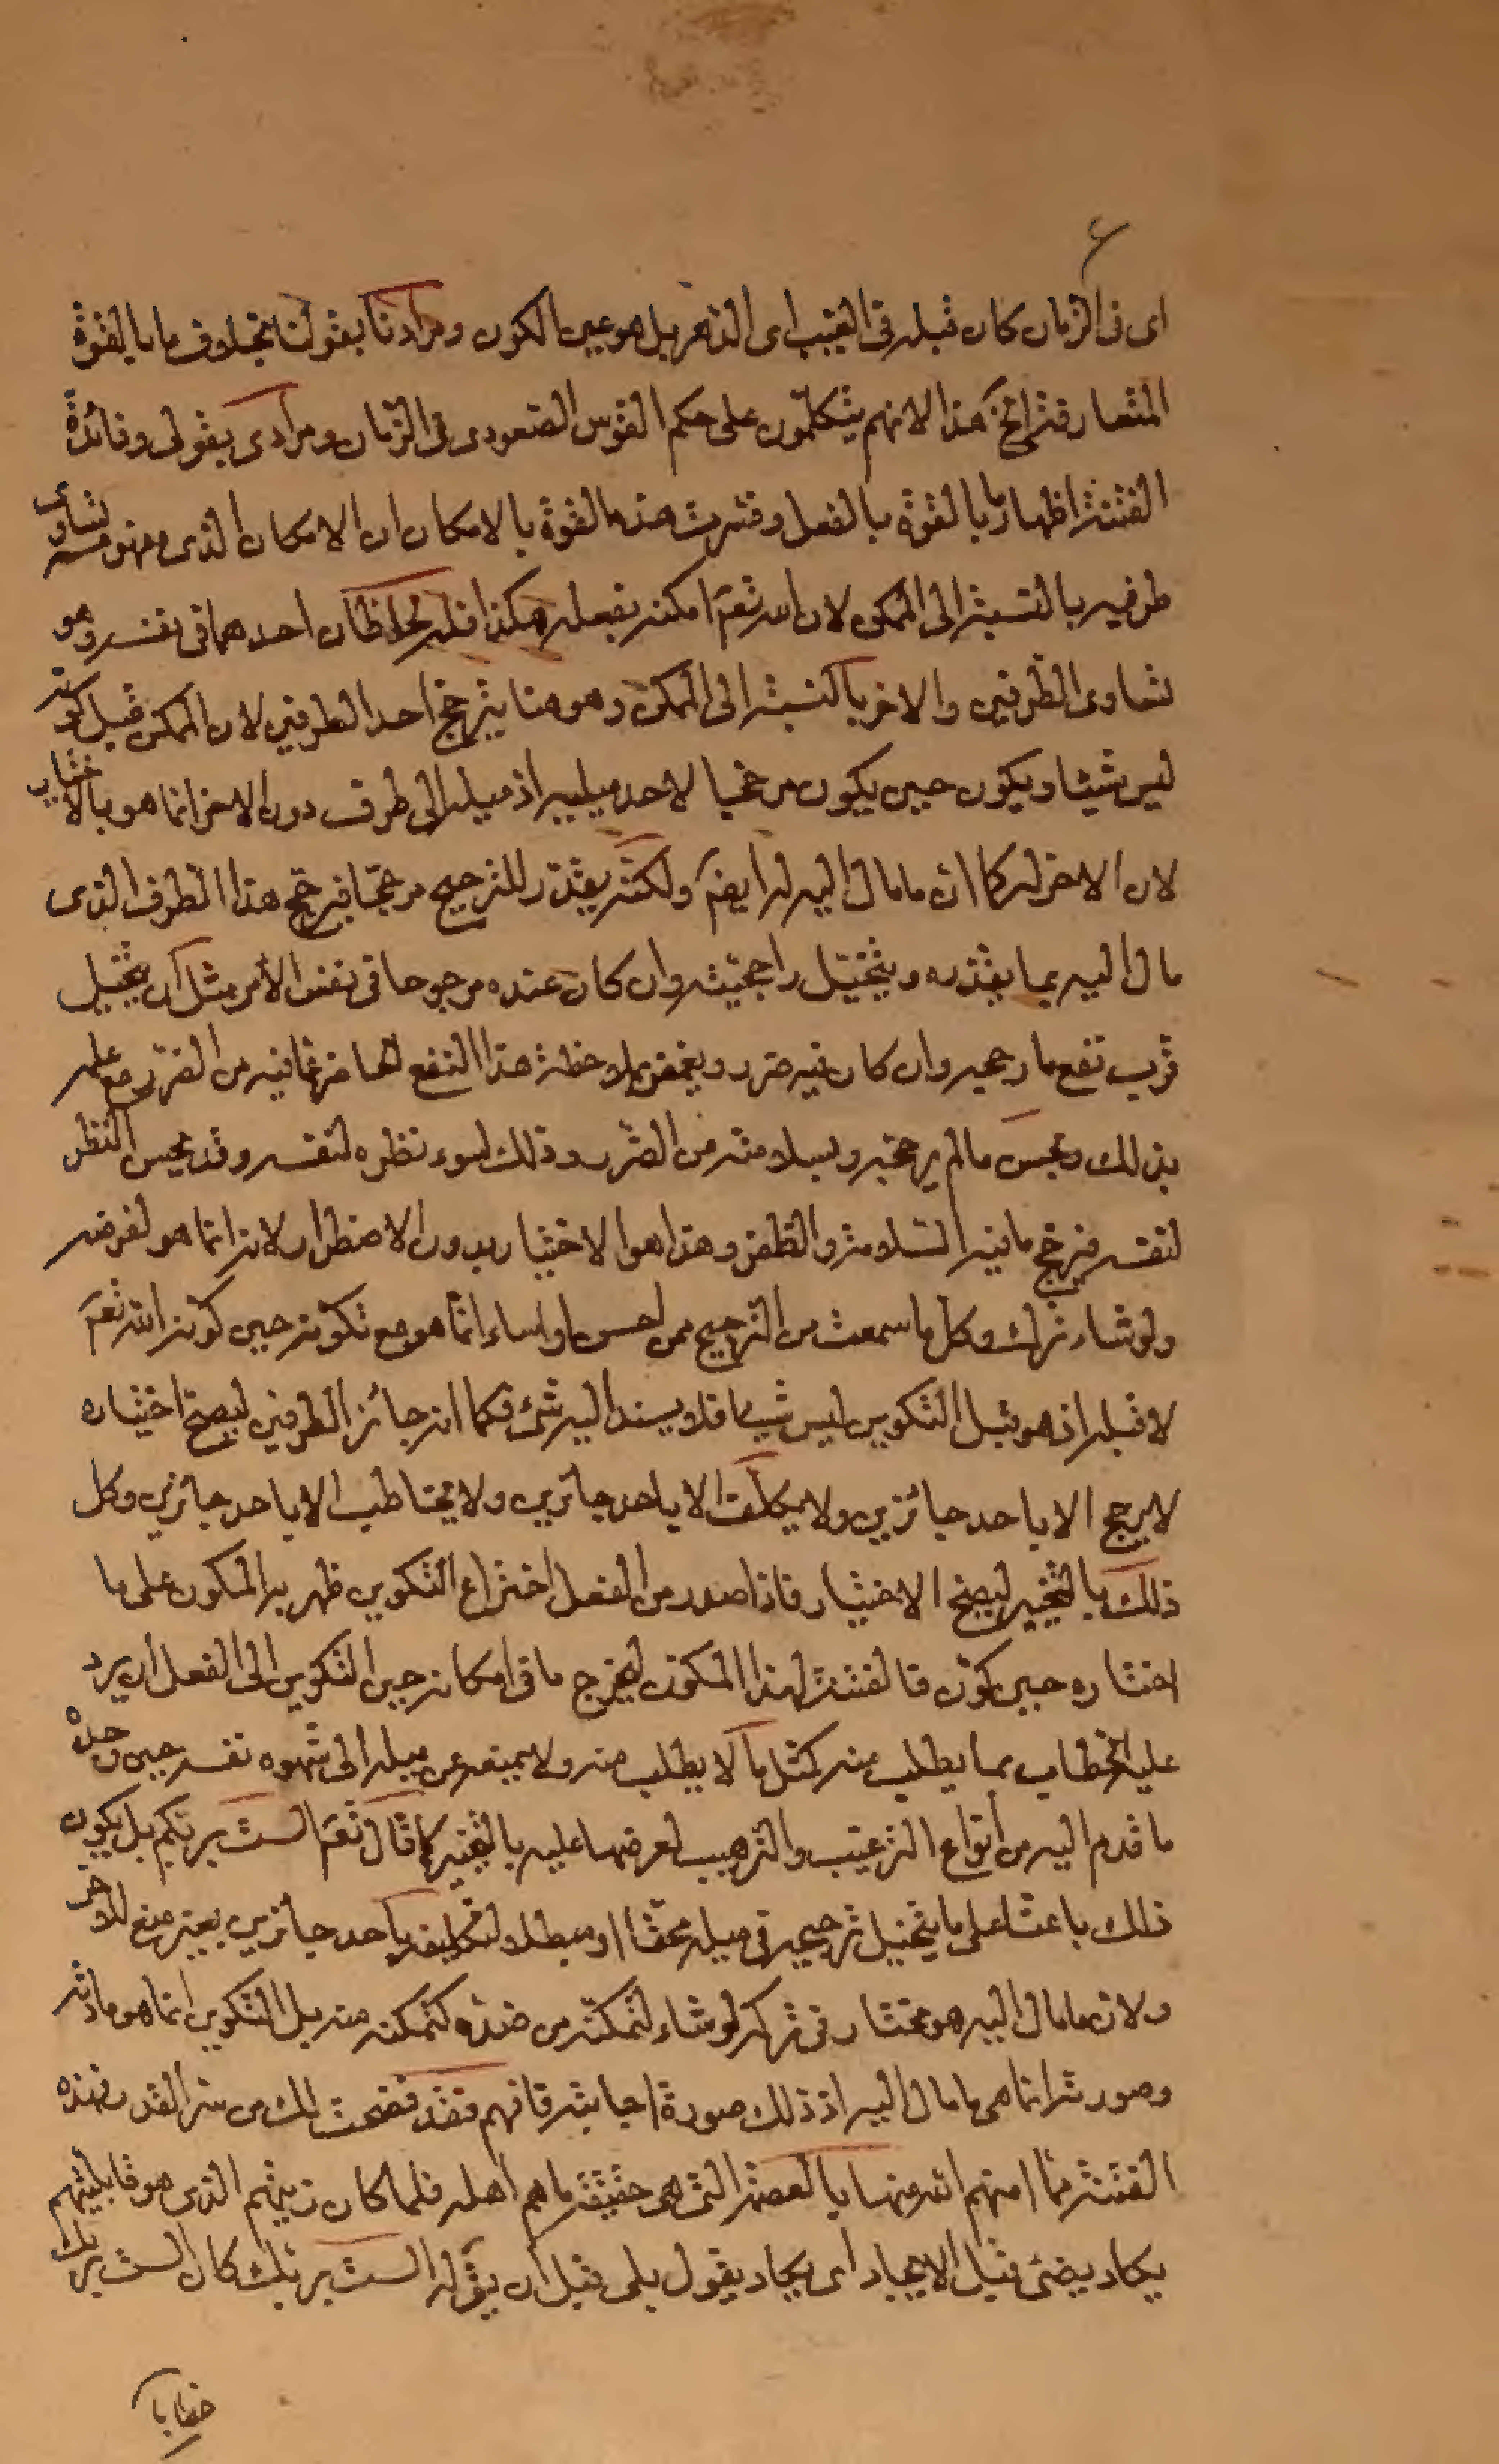 ٤
اى فى الزمان كان قبله فى الغيب اى الذهر بل هو عين الكون ومرادنا بقولنا بخلاف ما بالقوة
المتعارفة الخ هذا لانهم يتكلمون على حكم القوس الصعودى فى الزمان ومرادى بقولى وفائدة
الفتنة اظهار ما بالقوة بالفعل وفسرت هذه القوة بالامكان ان الامكان الذى مفهومه تساوى
طرفيه بالنسبة الى الممكن لان الله تعم امكنه بفعله هكذا فله لحاظان احدهما فى نفسه وهو
تساوى الطرفين والاخر بالنسبة الى الممكن وهو هنا يترجح احد الطرفين لان الممكن قبل كونه
ليس شيئا ويكون حين يكون مرجحا لاحد ميليه اذ ميله الى طرف دون الاخر انما هو بالاختيار
لان الاخر له كما ان ما مال اليه له ايضم ولكنه يقدر للترجيح مرجحا فيرجح هذا الطرف الذى
مال اليه بما يقدره ويتخيل راجحيته وان كان عنده مرجوحا فى نفس الأمر مثل ان يتخيل
قرب نفع ما رجحه وان كان فيه ضرر ويغمض بملاحظة هذا النفع لها عما فيه من الضرر مع علمه
بذلك وبحسن ما لم يرجحه وبسلامته من الضرر وذلك لسوء نظره لنفسه وقد يحسن النظر
لنفسه فيرجح ما فيه السلامة والظفر وهذا هو الاختيار بدون الاضطرار لانه انما هو لغرضه
ولو شاء ترك وكل ما سمعت من الترجيح ممن احسن او اساء انما هو مع تكوينه حين كونه الله تعم
لا قبله اذ هو قبل التكوين ليس شيئا فلا يسند اليه شئ فكما انه جائز الطرفين ليصح اختياره
لا يرجح الا باحد جائزين ولا يكلف الا باحد جائزين ولا يخاطب الا باحد جائزين وكل
ذلك بالتخيير ليصح الاختيار فاذا صدر من الفعل اختراع التكوين ظهر به المكون على ما
اختاره حين كون فالفتنة لهذا المكون ليخرج ما فى امكانه حين التكوين الى الفعل ان يرد
عليه الخطاب بما يطلب منه كمثل ما لا يطلب منه ولا يمنعه عن ميله الى شهوه نفسه حين وحده
ما قدم اليه من انواع الترغيب والترهيب لعرضها عليه بالتخيير كما قال تعم الست بربكم بل يكون
ذلك باعثا على ما يتخيل ترجيحه فى ميله محقا او مبطلا لتكليفه باحد جائزين بغير منع للاخر
ولان ما مال اليه هو مختار فى تركه لو شاء لتمكنه من ضده كتمكنه منه بل التكوين انما هو مادته
وصورته انما هى ما مال اليه اذ ذلك صورة اجابته فافهم فقد فتحت لك من سر القدر بهذه
الفتنة منا امنهم الله منها بالعصمة التى هى حقيقة ما هم اهله فلما كان زيتهم الذى هو قابليتهم
يكاد يضئ قبل الايجاد اى يكاد يقول بلى قبل ان يق له الست بربك كان الست بربك
خطابا